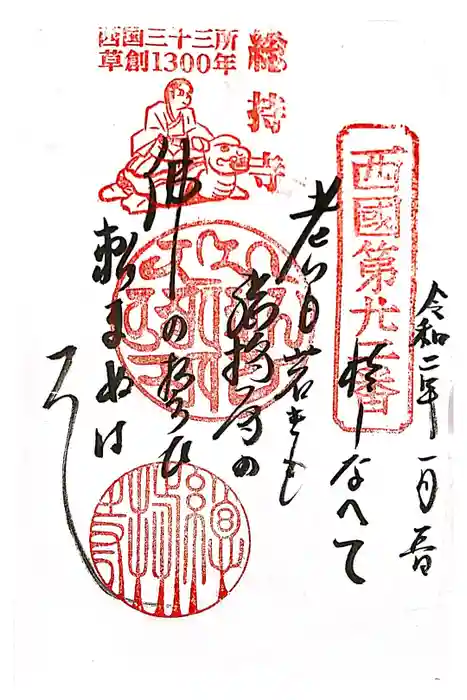 西国三十三所
草創1300年
総持寺
西國第廿二番
令和二年一月
おしなへて
老いも若きも
総持寺の
佛のちかひ
頼まぬは
なし
總持寺